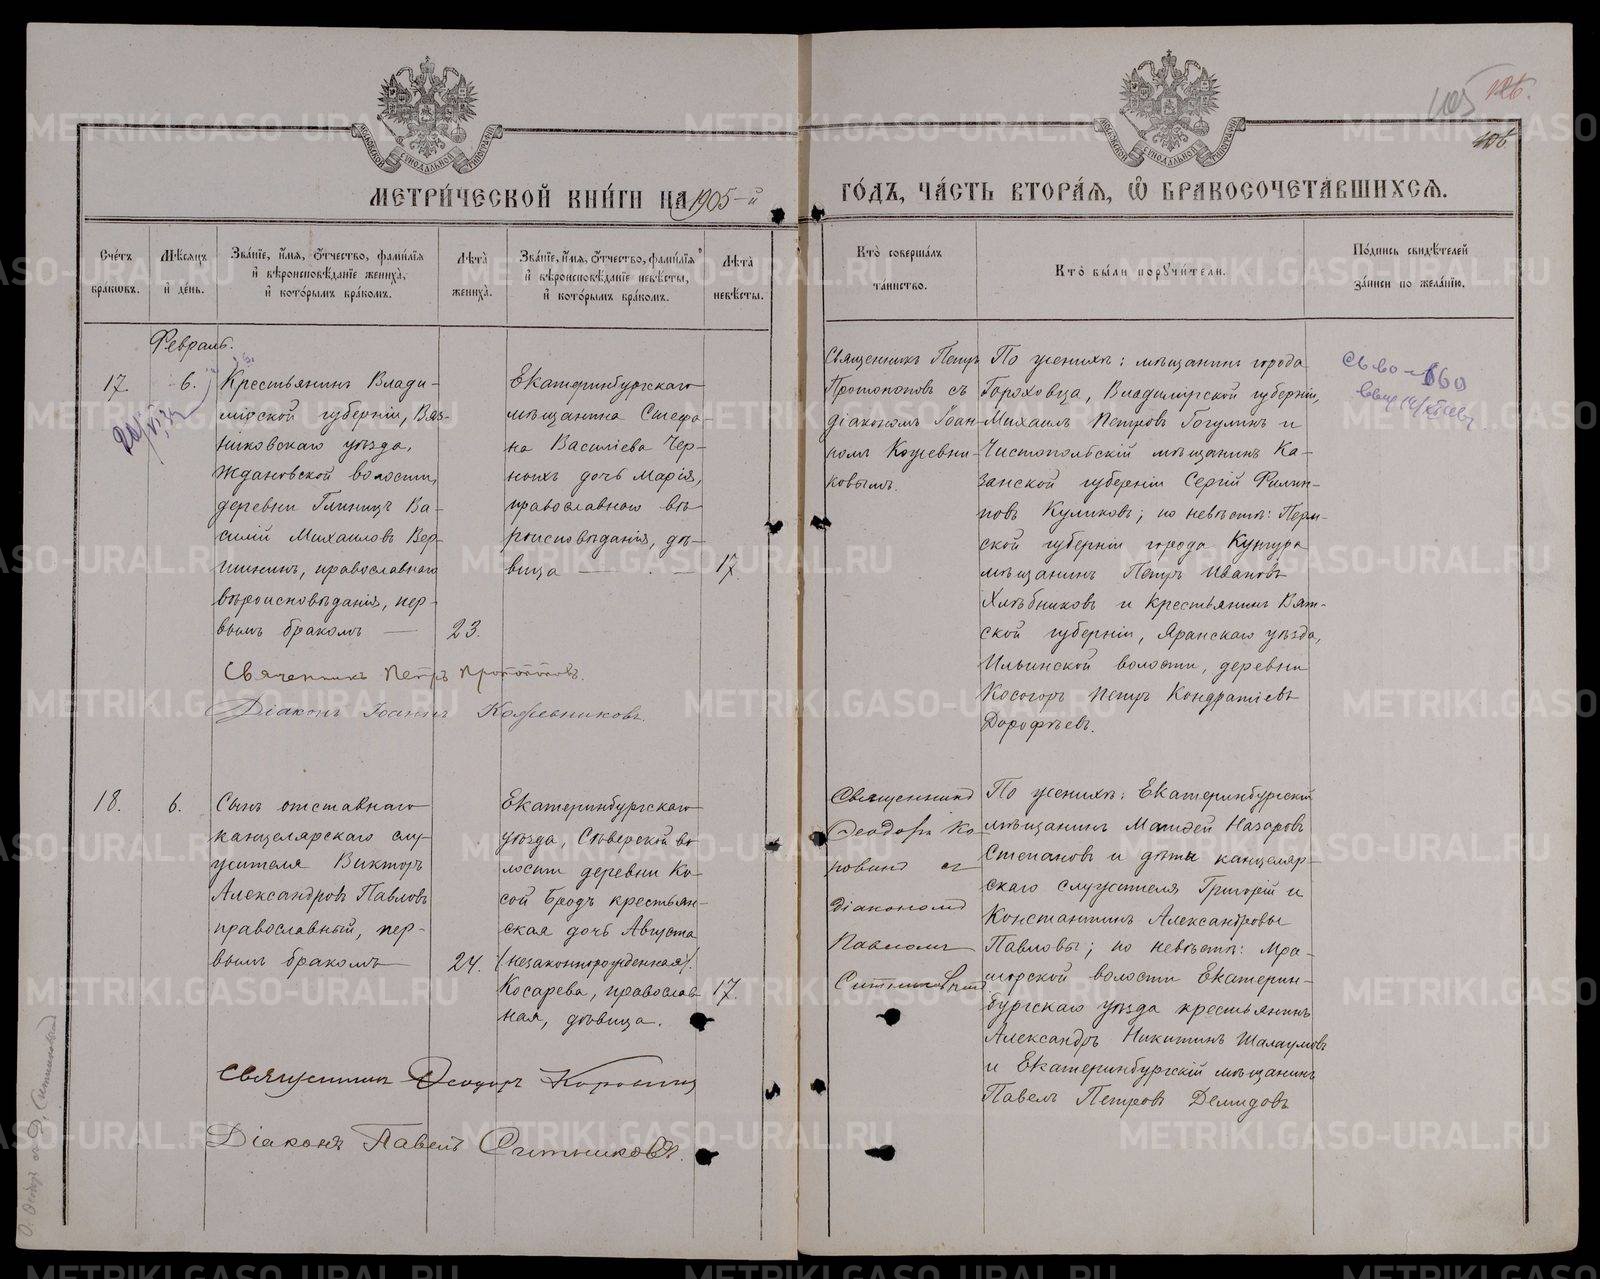 МЕТРИ́ЧЕСКОЙ КНИ́ГИ НА 1905-й
ГО́ДЪ, ЧА́СТЬ ВТОРА́Я, Ѡ҆ БРАКОСОЧЕТА́ВШИХСѦ.
МОСКОВСКОЙ СѴНОДАЛЬНОЙ ТИПОГРАФІИ
МОСКОВСКОЙ СѴНОДАЛЬНОЙ ТИПОГРАФІИ
105
106
Сче́тъ бра́ковъ.
Мѣ́сяцъ и҆ де́нь.
Зва́нїе, и҆́мя, ѻ҆́тчество, фами́лїя
и҆ вѣроисповѣ́данїе жениха̀,
и҆ кото́рымъ бра́комъ.
Лѣта̀ жениха̀.
Зва́нїе, и҆́мя, ѻ҆́тчество, фами́лїя
и҆ вѣроисповѣ́данїе невѣ́сты,
и҆ кото́рымъ бра́комъ.
Лѣта̀ невѣ́сты.
Кто̀ соверша́лъ та́инство.
Кто̀ бы́ли порꙋчи́тели.
По́дпись свидѣ́телей за́писи по жела́нїю.
Февраль.
17.
6.
Крестьянинъ Влади-
мірской губерніи, Вяз-
никовскаго уѣзда,
Ждановской волости,
деревни Глиницъ Ва-
силій Михаиловъ Вер-
шининъ, православнаго
вѣроисповѣданія, пер-
вымъ бракомъ —
23.
Екатеринбургскаго
мѣщанина Стефа-
на Василіева Чер-
ныхъ дочь Марія,
православнаго вѣ-
роисповѣданія, дѣ-
вица —
17.
Священникъ Петръ
Протопоповъ съ
діакономъ Іоан-
номъ Кожевни-
ковымъ.
По женихѣ: мѣщанинъ города
Гороховца, Владимірской губерніи,
Михаилъ Петровъ Гогулинъ и
Чистопольскій мѣщанинъ Ка-
занской губерніи Сергій Филип-
повъ Куликовъ; по невѣстѣ: Перм-
ской губерніи города Кунгура
мѣщанинъ Петръ Ивановъ
Хлѣбниковъ и крестьянинъ Вят-
ской губерніи, Яранскаго уѣзда,
Ильинской волости, деревни
Косогоръ Петръ Кондратіевъ
Дорофѣевъ.
Священникъ Петръ Протопоповъ.
Діаконъ Іоаннъ Кожевниковъ.
18.
6.
Сынъ отставнаго
канцелярскаго слу-
жителя Викторъ
Александровъ Павловъ
православный, пер-
вымъ бракомъ
24.
Екатеринбургскаго
уѣзда, Сѣверской во
лости деревни Ко-
сой Бродъ крестьян-
ская дочь Августа
(незаконнорожденная)
Косарева, православ-
ная, дѣвица.
17.
Священникъ
Ѳеодоръ Ко-
ровинъ съ
діакономъ
Павломъ
Ситниковымъ
По женихѣ: Екатеринбургскій
мѣщанинъ Матѳей Назаровъ
Степановъ и дѣти канцеляр-
скаго служителя Григорій и
Константинъ Александровы
Павловы; по невѣстѣ: Мра-
морской волости Екатерин-
бургскаго уѣзда крестьянинъ
Александръ Никитинъ Шалаумовъ
и Екатеринбургскій мѣщанинъ
Павелъ Петровъ Демидовъ
Священникъ Ѳеодоръ Коровинъ
Діаконъ Павелъ Ситниковъ.
METRIKI.GASO-URAL.RU